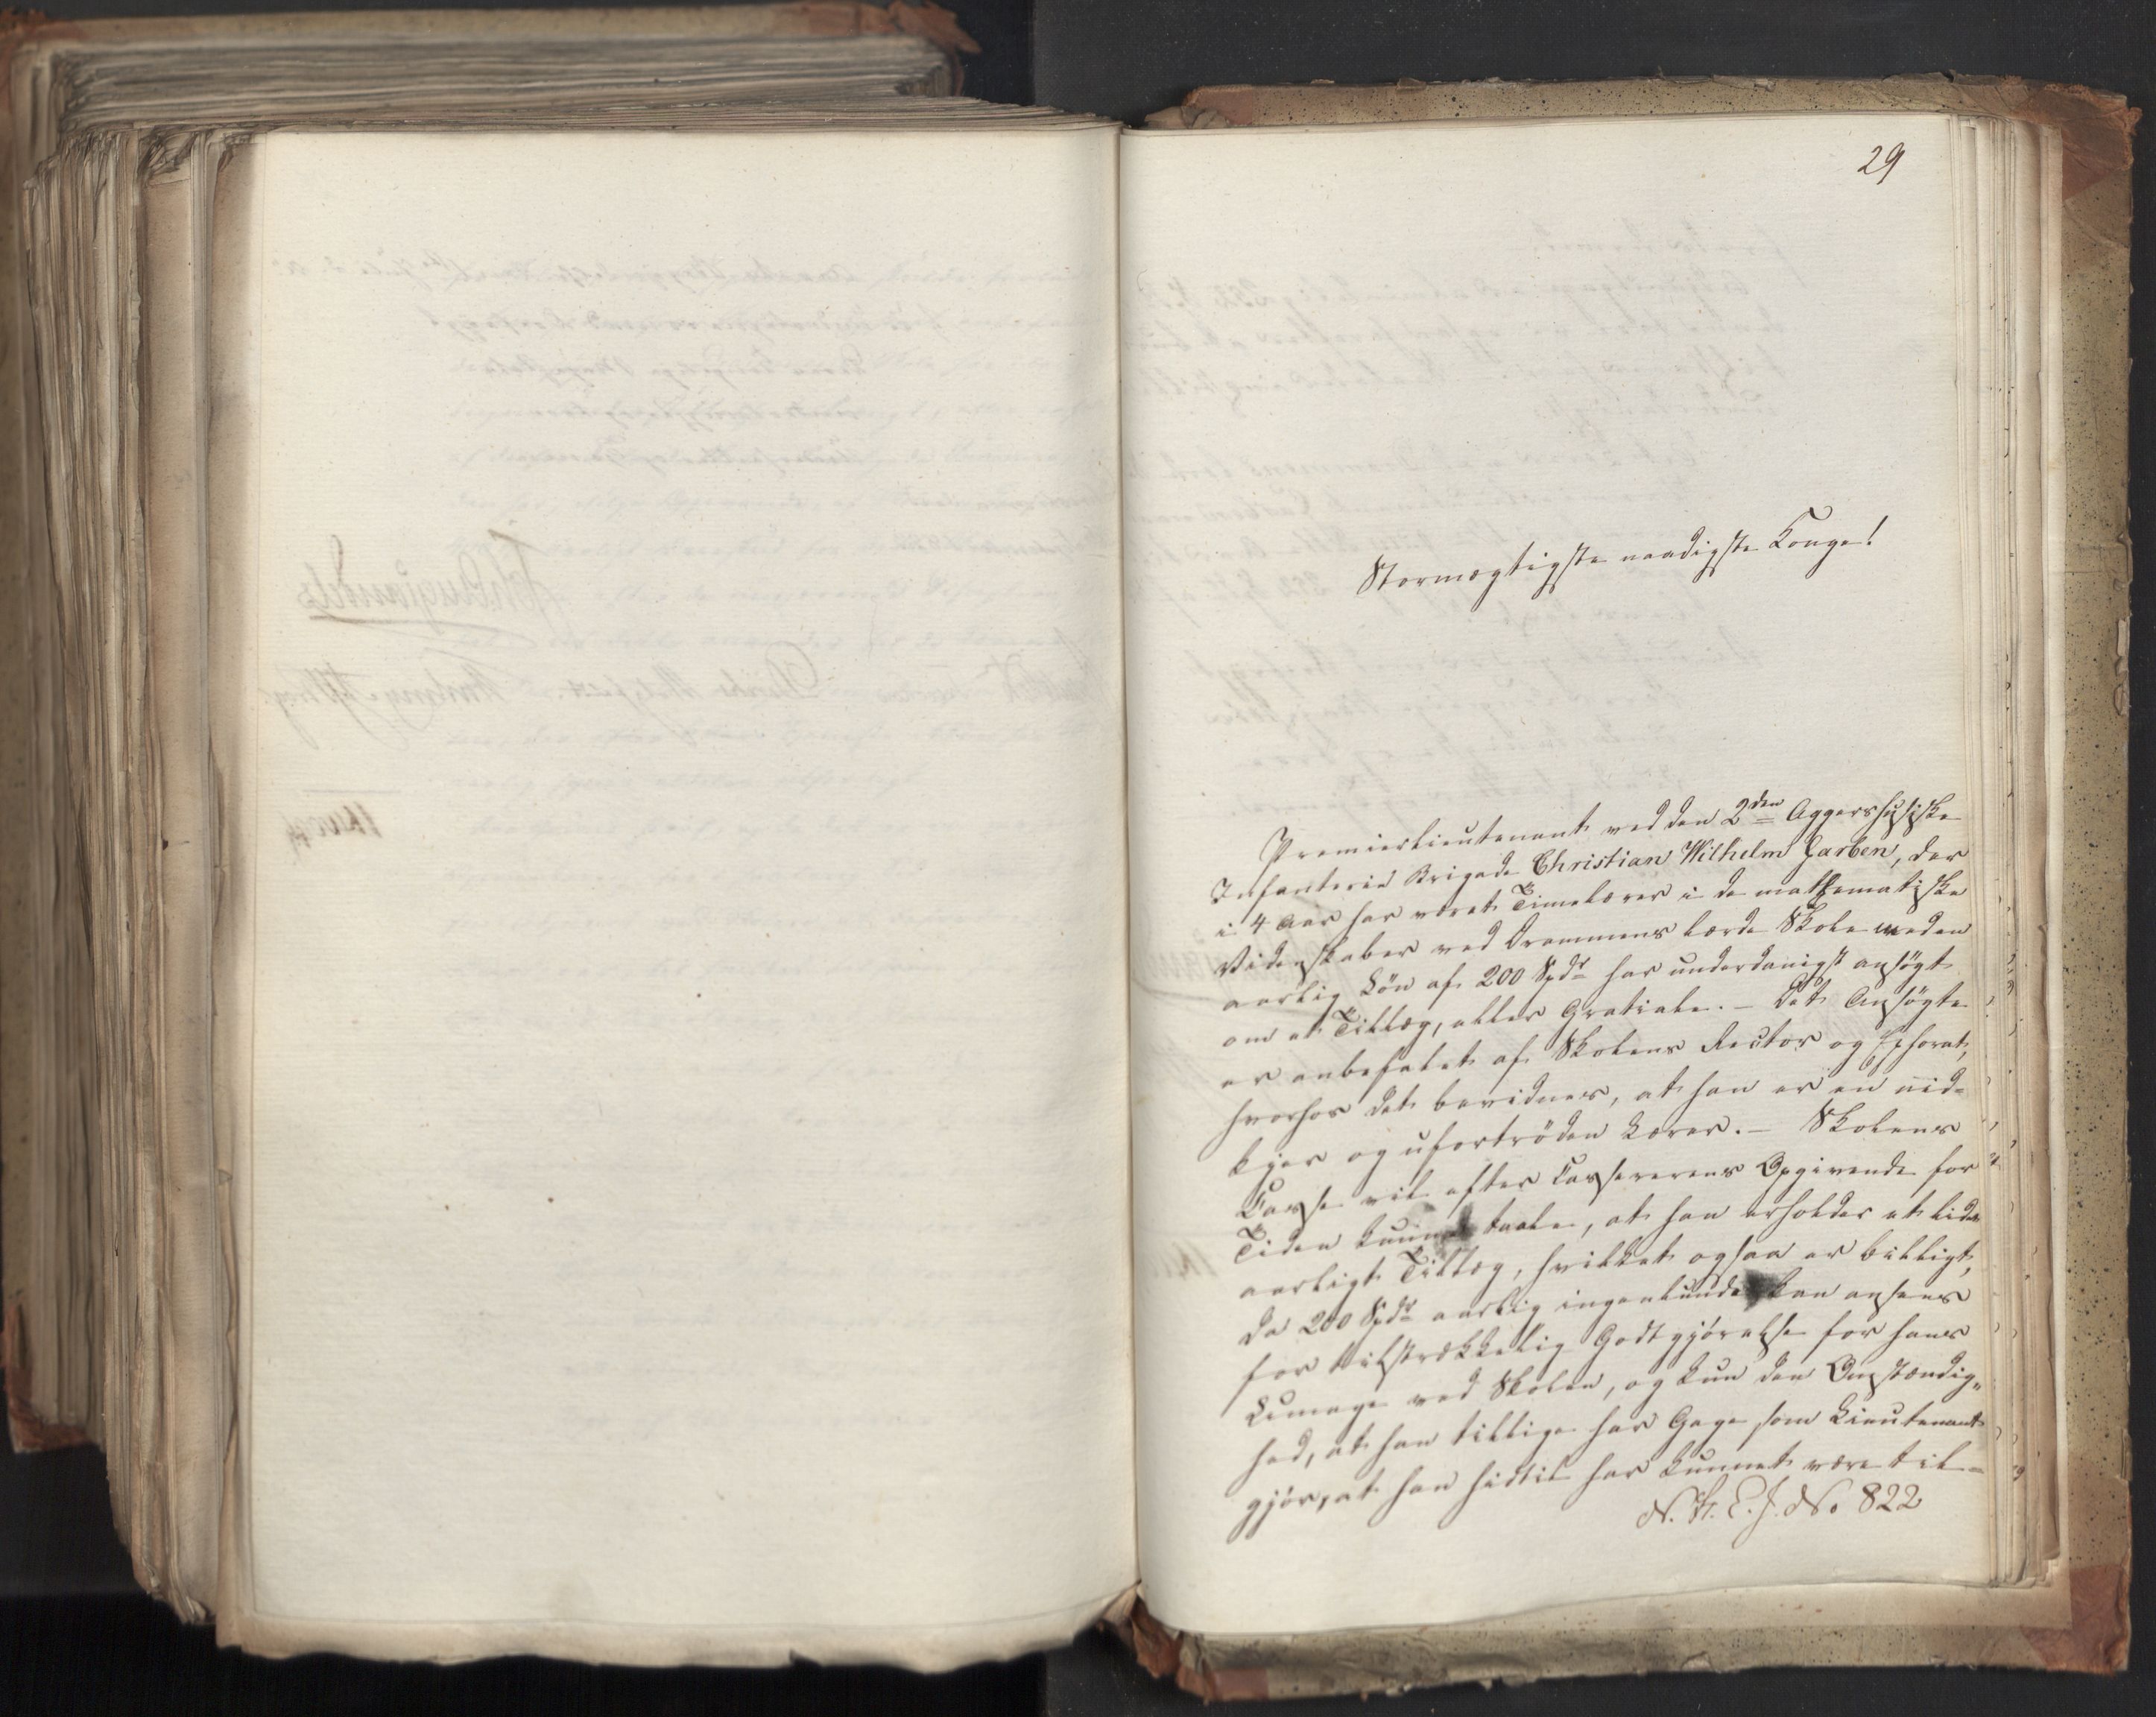 29
Stormægtigste naadigste Konge!
Premierlieutenant ved den 2den Aggershusiske
Infanterie Brigade Christian Wilhelm Garben, der
i 4 Aar har været Timelærer i de mathematiske
Videnskaber ved Drammens lærde Skole med en
aarlig Løn af 200 Spdr har underdanigst ansøgt
om et Tillæg, eller Gratiale. - Det Ansøgte
er anbefalet af Skolens Rector og Ephorat,
hvorhos det bevidnes, at han er en nid-
kjær og ufortrøden Lærer. - Skolens
Casse vil efter Cassererens Opgivende for
Tiden kunne taale, at han erholder et lidet
aarligt Tillæg, hvilket ogsaa er billigt,
da 200 Spdr aarlig ingenlunde kan ansees
for tilstrækkelig Godtgjørelse for hans
Umage ved Skolen, og kun den Omstændig-
hed, at han tillige har Gage som Lieutenant
gjør, at han hidtil har kunnet være til-
N. K. E. J. No 822